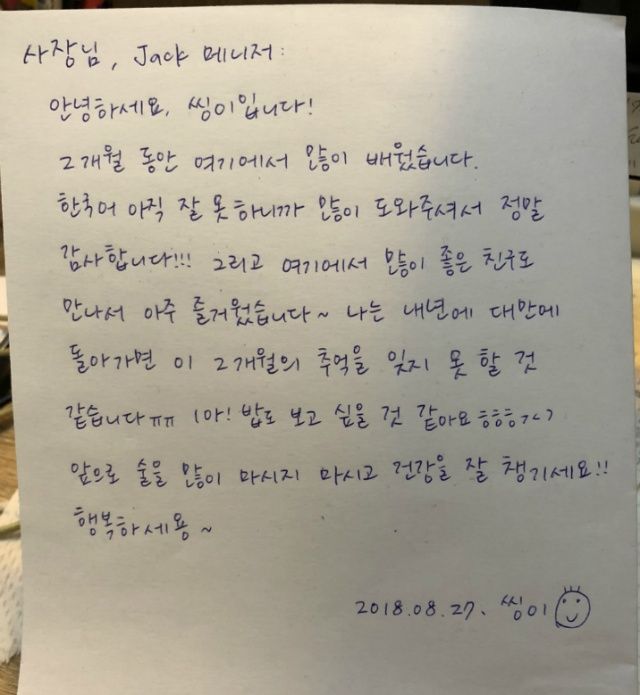 사장님, Jack 메니저:
안녕하세요, 씽이입니다!
2개월 동안 여기에서 많이 배웠습니다.
한국어 아직 잘 못하니까 많이 도와주셔서 정말
감사합니다!!! 그리고 여기에서 많이 좋은 친구도
만나서 아주 즐거웠습니다~ 나는 내년에 대만에
돌아가면 이 2개월의 추억을 잊지 못 할 것
같습니다ㅠㅠ 아! 밥도 보고 싶을 것 같아요 ㅎㅎㅎ
앞으로 술을 많이 마시지 마시고 건강을 잘 챙기세요!!
행복하세용~
2018.08.27. 씽이